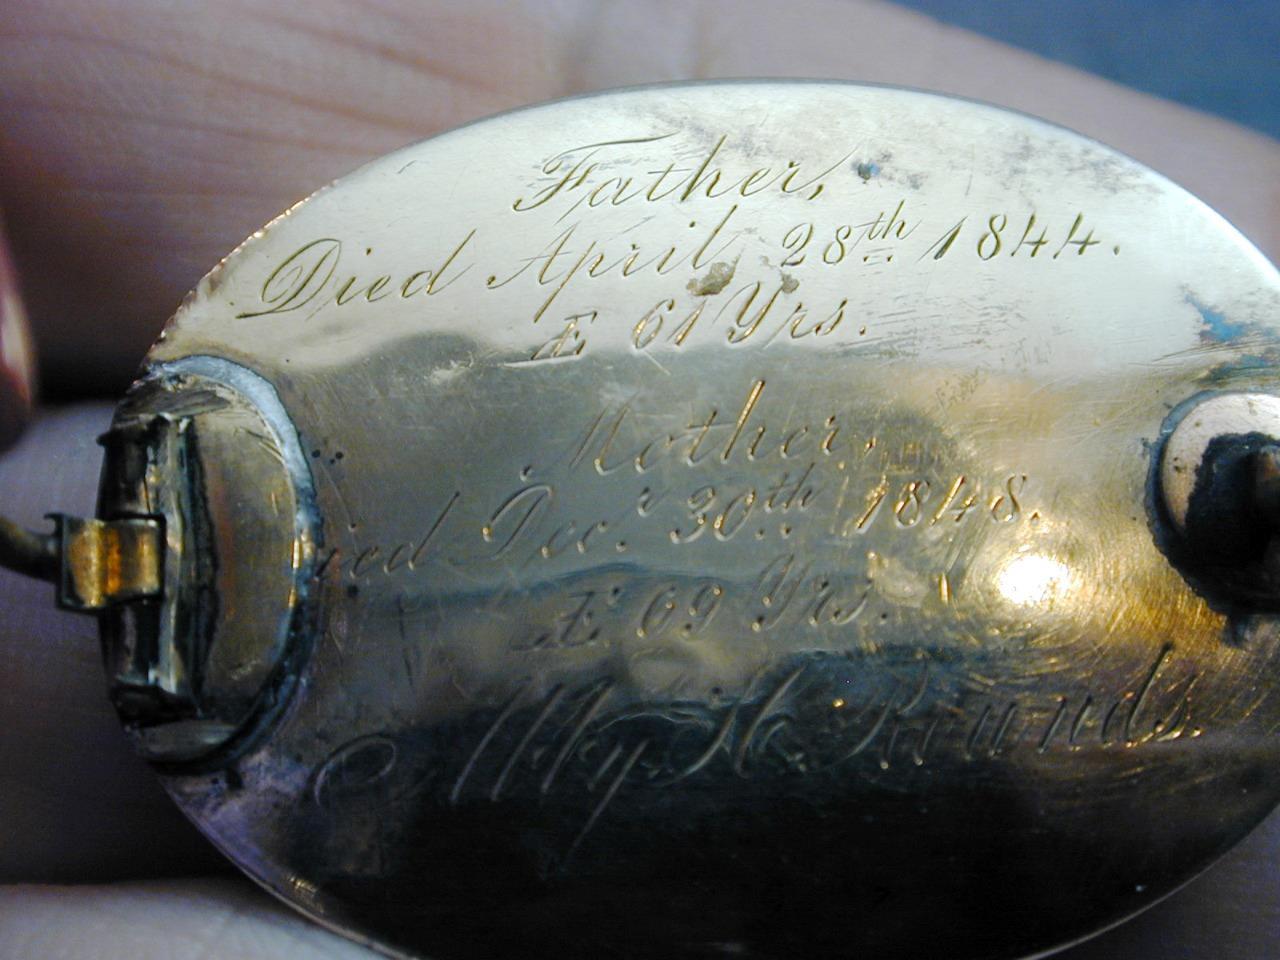 Father,
Died April, 28th 1844.
Æ 61 Yrs.
Mother,
ied Decr. 30th 1848.
Æ 69 Yrs.
Abby K. Rounds.